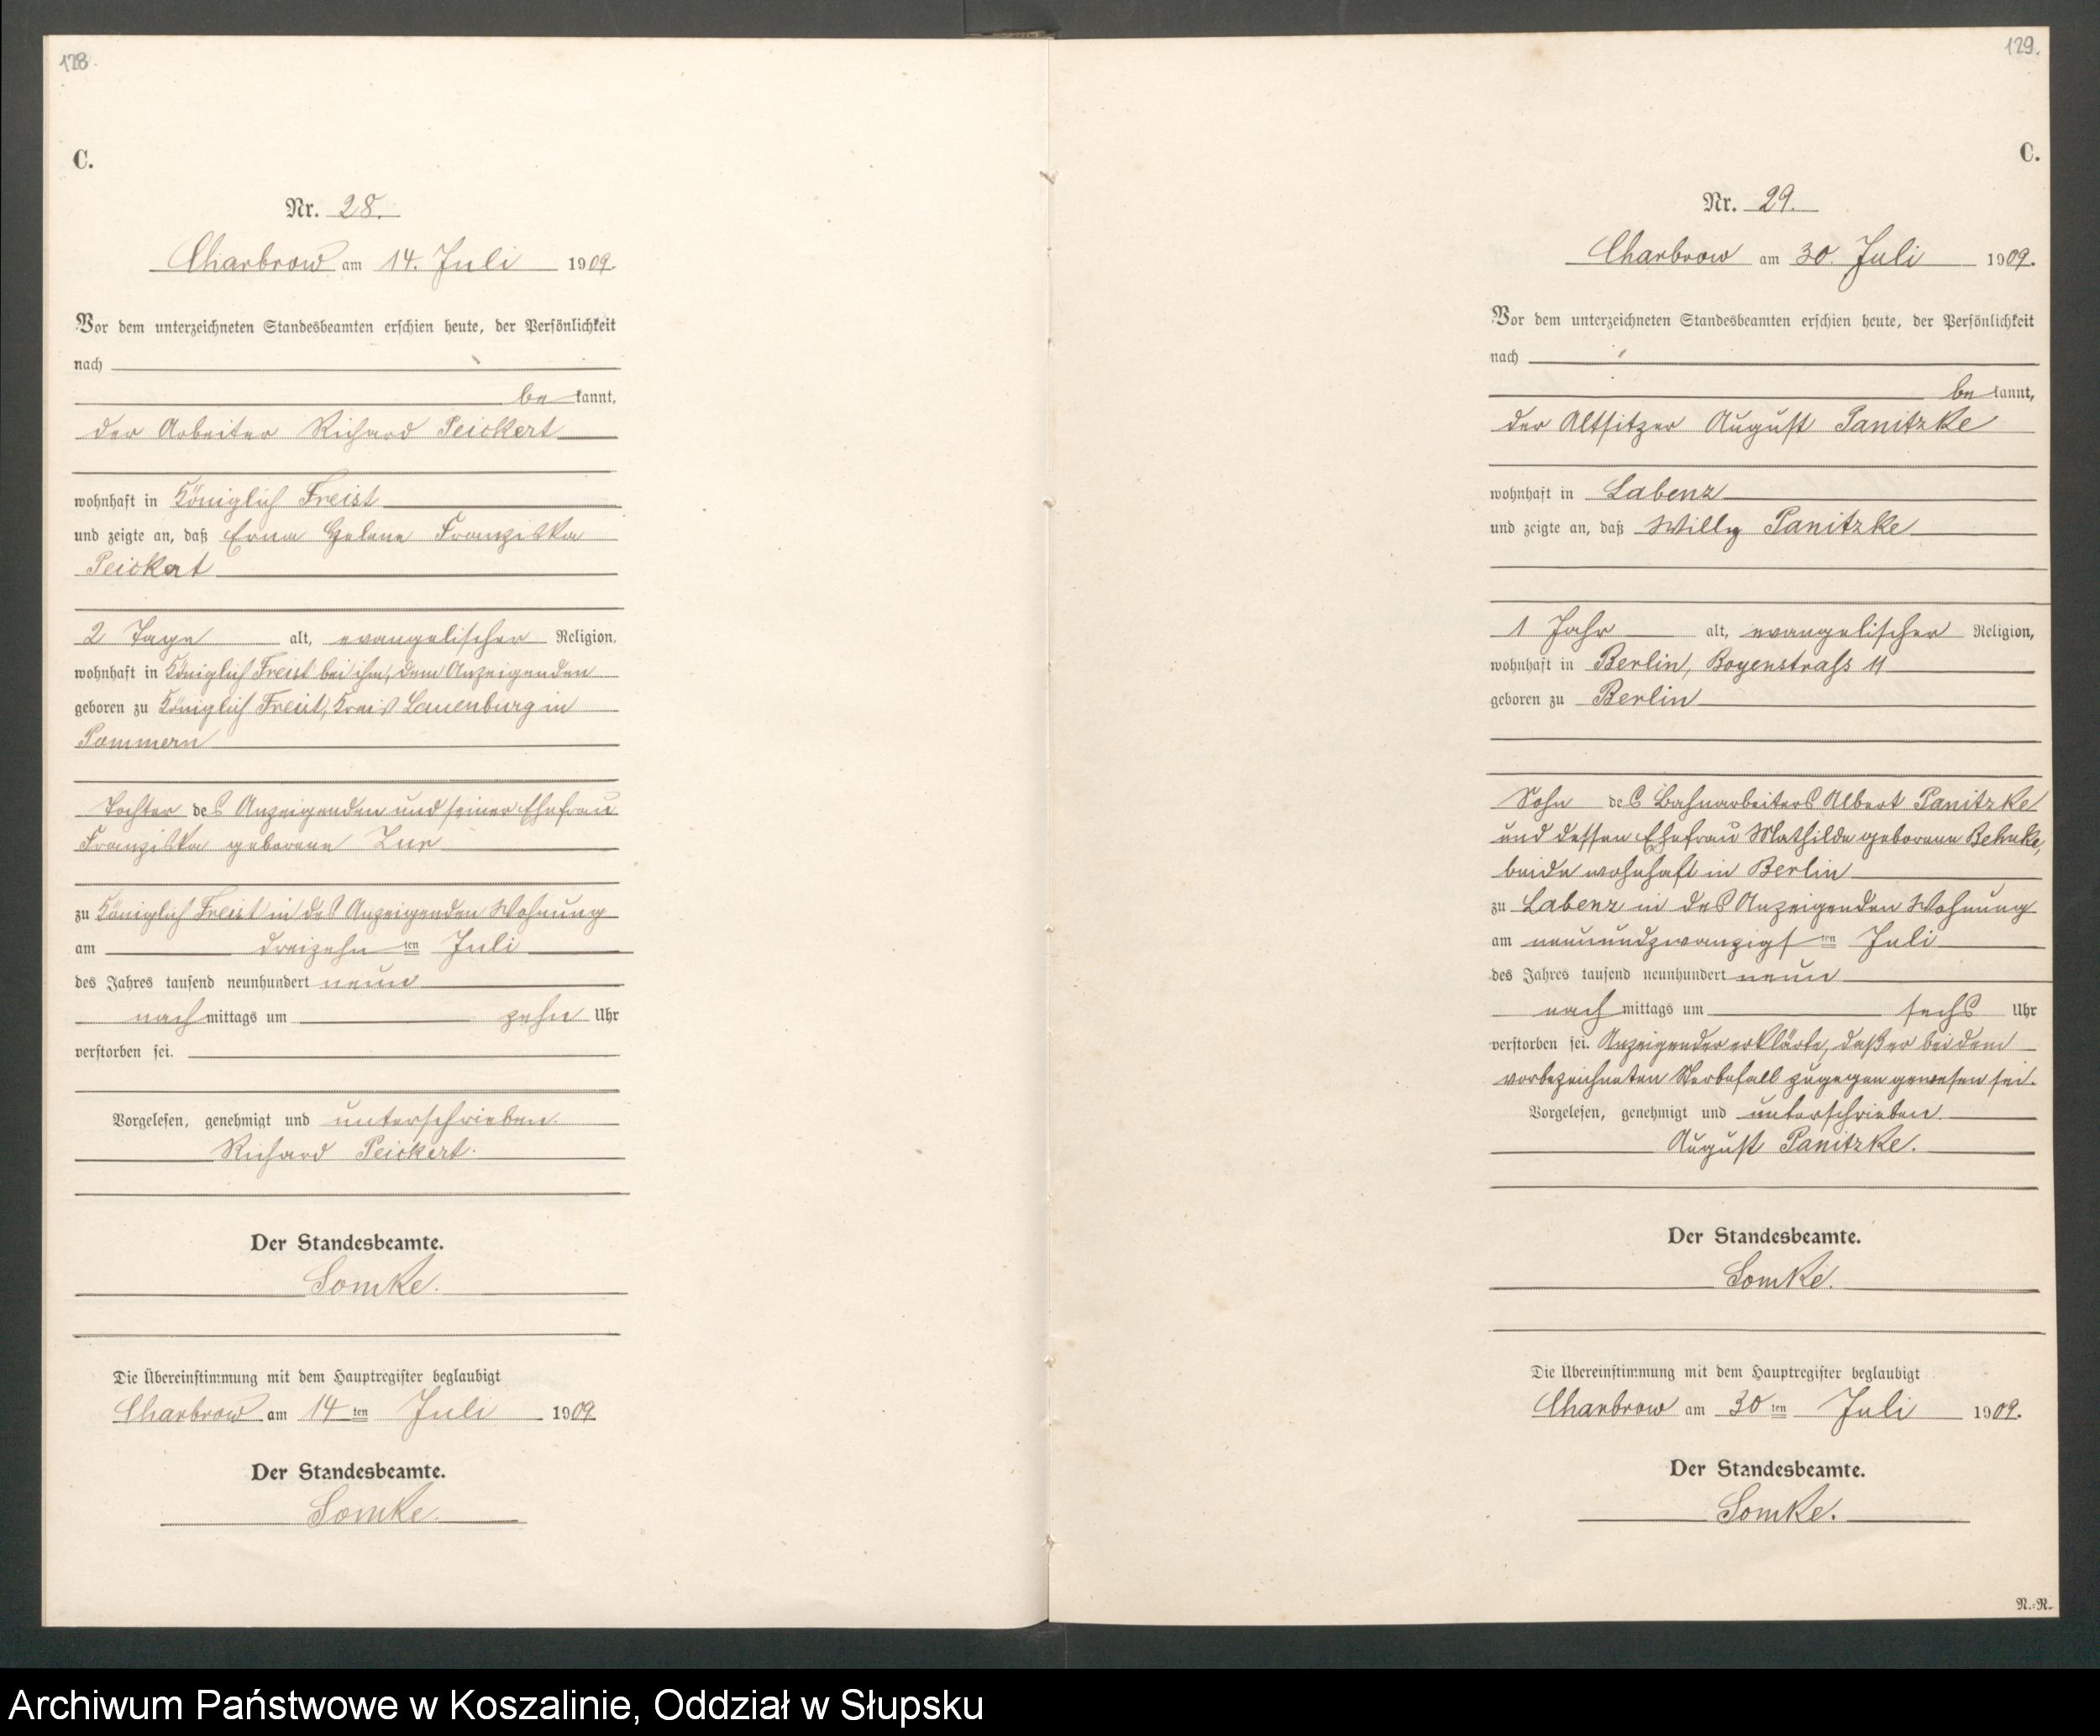 128.
C.
Nr. 28.
Charbrow am 14. Juli 1909.
Vor dem unterzeichneten Standesbeamten erschien heute, der Persönlichkeit
nach
be kannt,
der Arbeiter Richard Peickert
wohnhaft in Königlich Freist
und zeigte an, daß Erna Helene Franziska
Peickert
2 Tage alt, evangelischer Religion,
wohnhaft in Königlich Freist bei ihm, dem Anzeigenden
geboren zu Königlich Freist, Kreis Lauenburg in
Pommern
Tochter des Anzeigenden und seiner Ehefrau
Franziska geborene
zu Königlich Freist in des Anzeigenden Wohnung
am dreizehn ten Juli
des Jahres tausend neunhundert neun
nach mittags um zehn Uhr
verstorben sei.
Vorgelesen, genehmigt und unterschrieben.
Richard Peickert.
Der Standesbeamte.
Somke.
Die Übereinstimmung mit dem Hauptregister beglaubigt
Charbrow am 14 ten Juli 1909
Der Standesbeamte.
Somke.
129.
C.
Nr. 29.
Charbrow am 30. Juli 1909.
Vor dem unterzeichneten Standesbeamten erschien heute, der Persönlichkeit
nach
be kannt,
der Altsitzer August Panitzke
wohnhaft in Labenz
und zeigte an, daß Willy Panitzke
1 Jahr alt, evangelischer Religion,
wohnhaft in Berlin, Boyenstraße 11
geboren zu Berlin
Sohn des Bahnarbeiters Albert Panitzke
und dessen Ehefrau Mathilde geborene Behnke,
beide wohnhaft in Berlin
zu Labenz in des Anzeigenden Wohnung
am neunundzwanzigs ten Juli
des Jahres tausend neunhundert neun
nach mittags um sechs Uhr
verstorben sei. Anzeigender erklärte, daß er bei dem
vorbezeichneten Sterbefall zugegen gewesen sei.
Vorgelesen, genehmigt und unterschrieben
August Panitzke.
Der Standesbeamte.
Somke.
Die Übereinstimmung mit dem Hauptregister beglaubigt
Charbrow am 30 ten Juli 1909.
Der Standesbeamte.
Somke.
N.-R.
Archiwum Państwowe w Koszalinie, Oddział w Słupsku